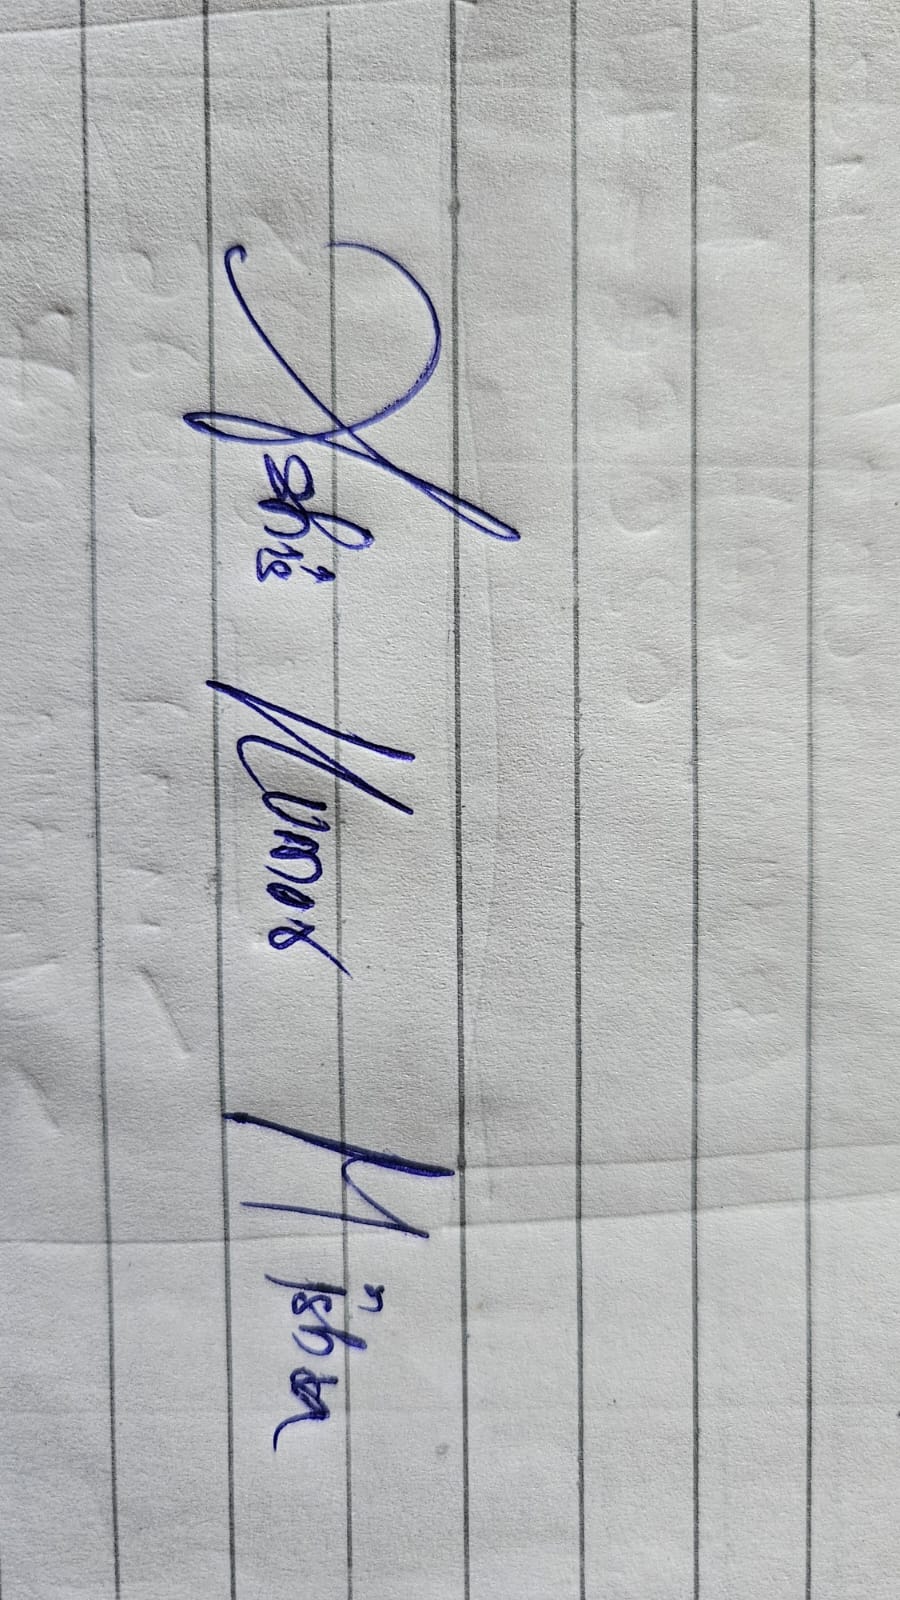 Ashis Kumar Mishra